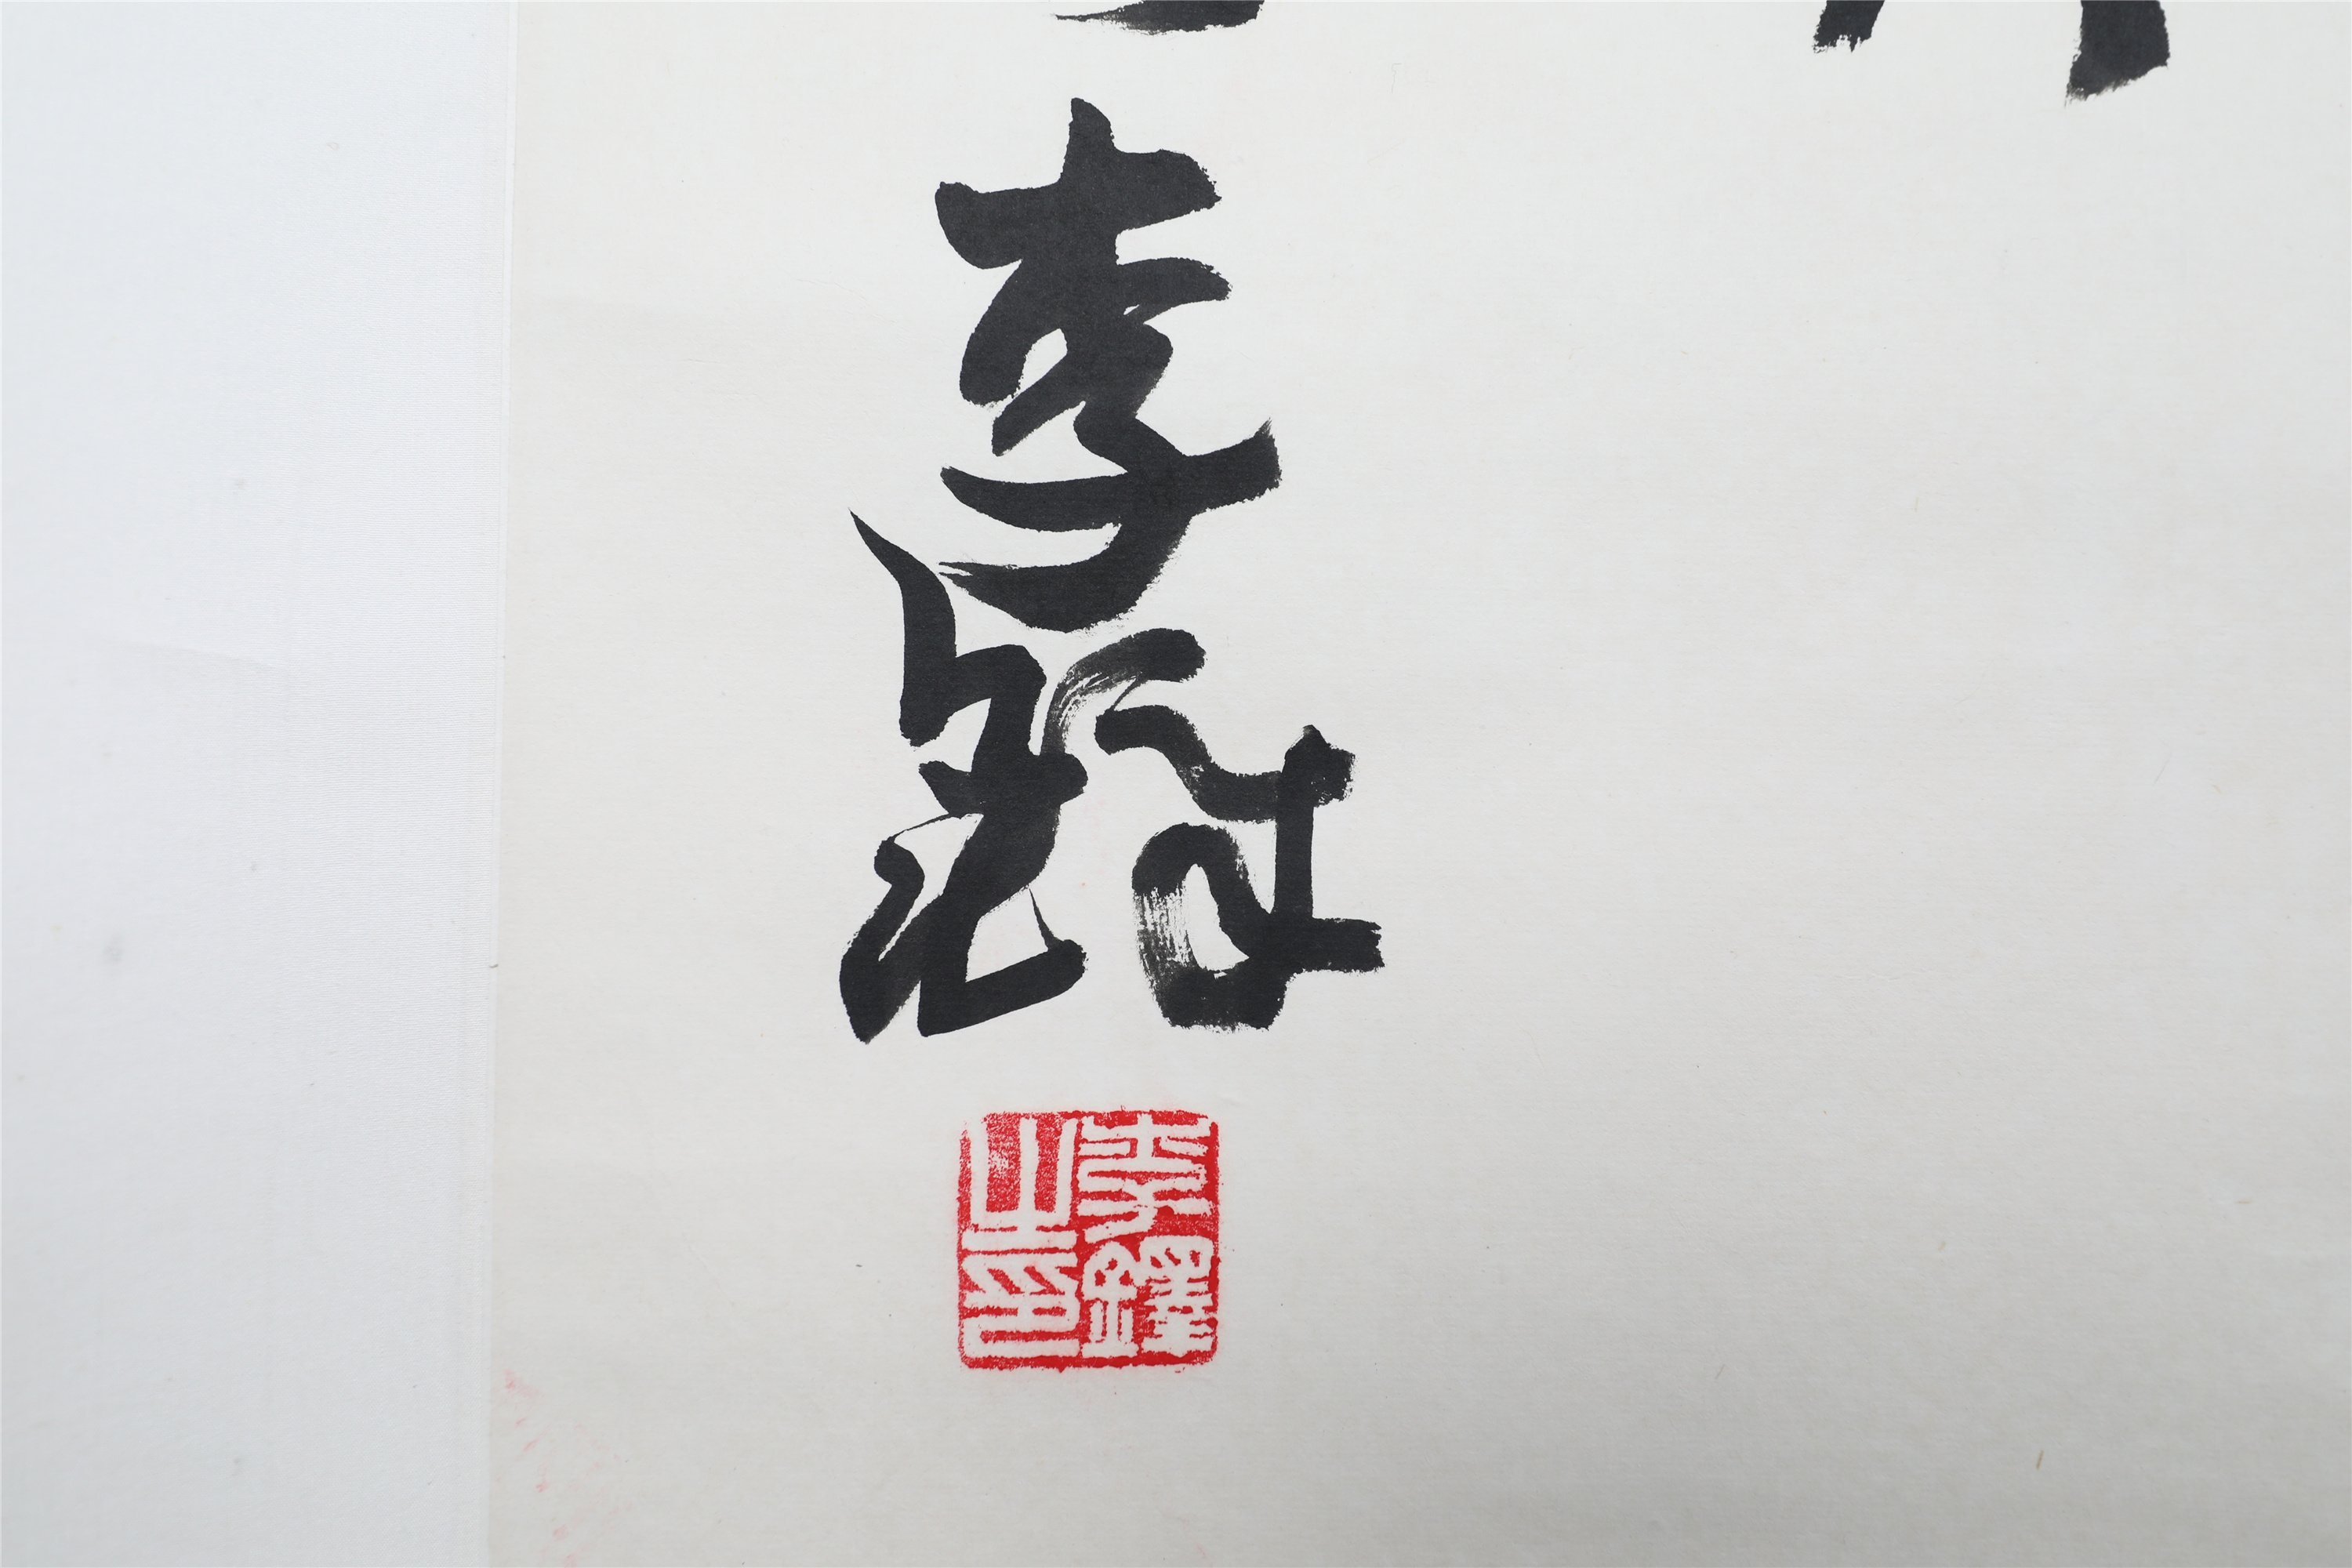 李鐸
李鐸之印